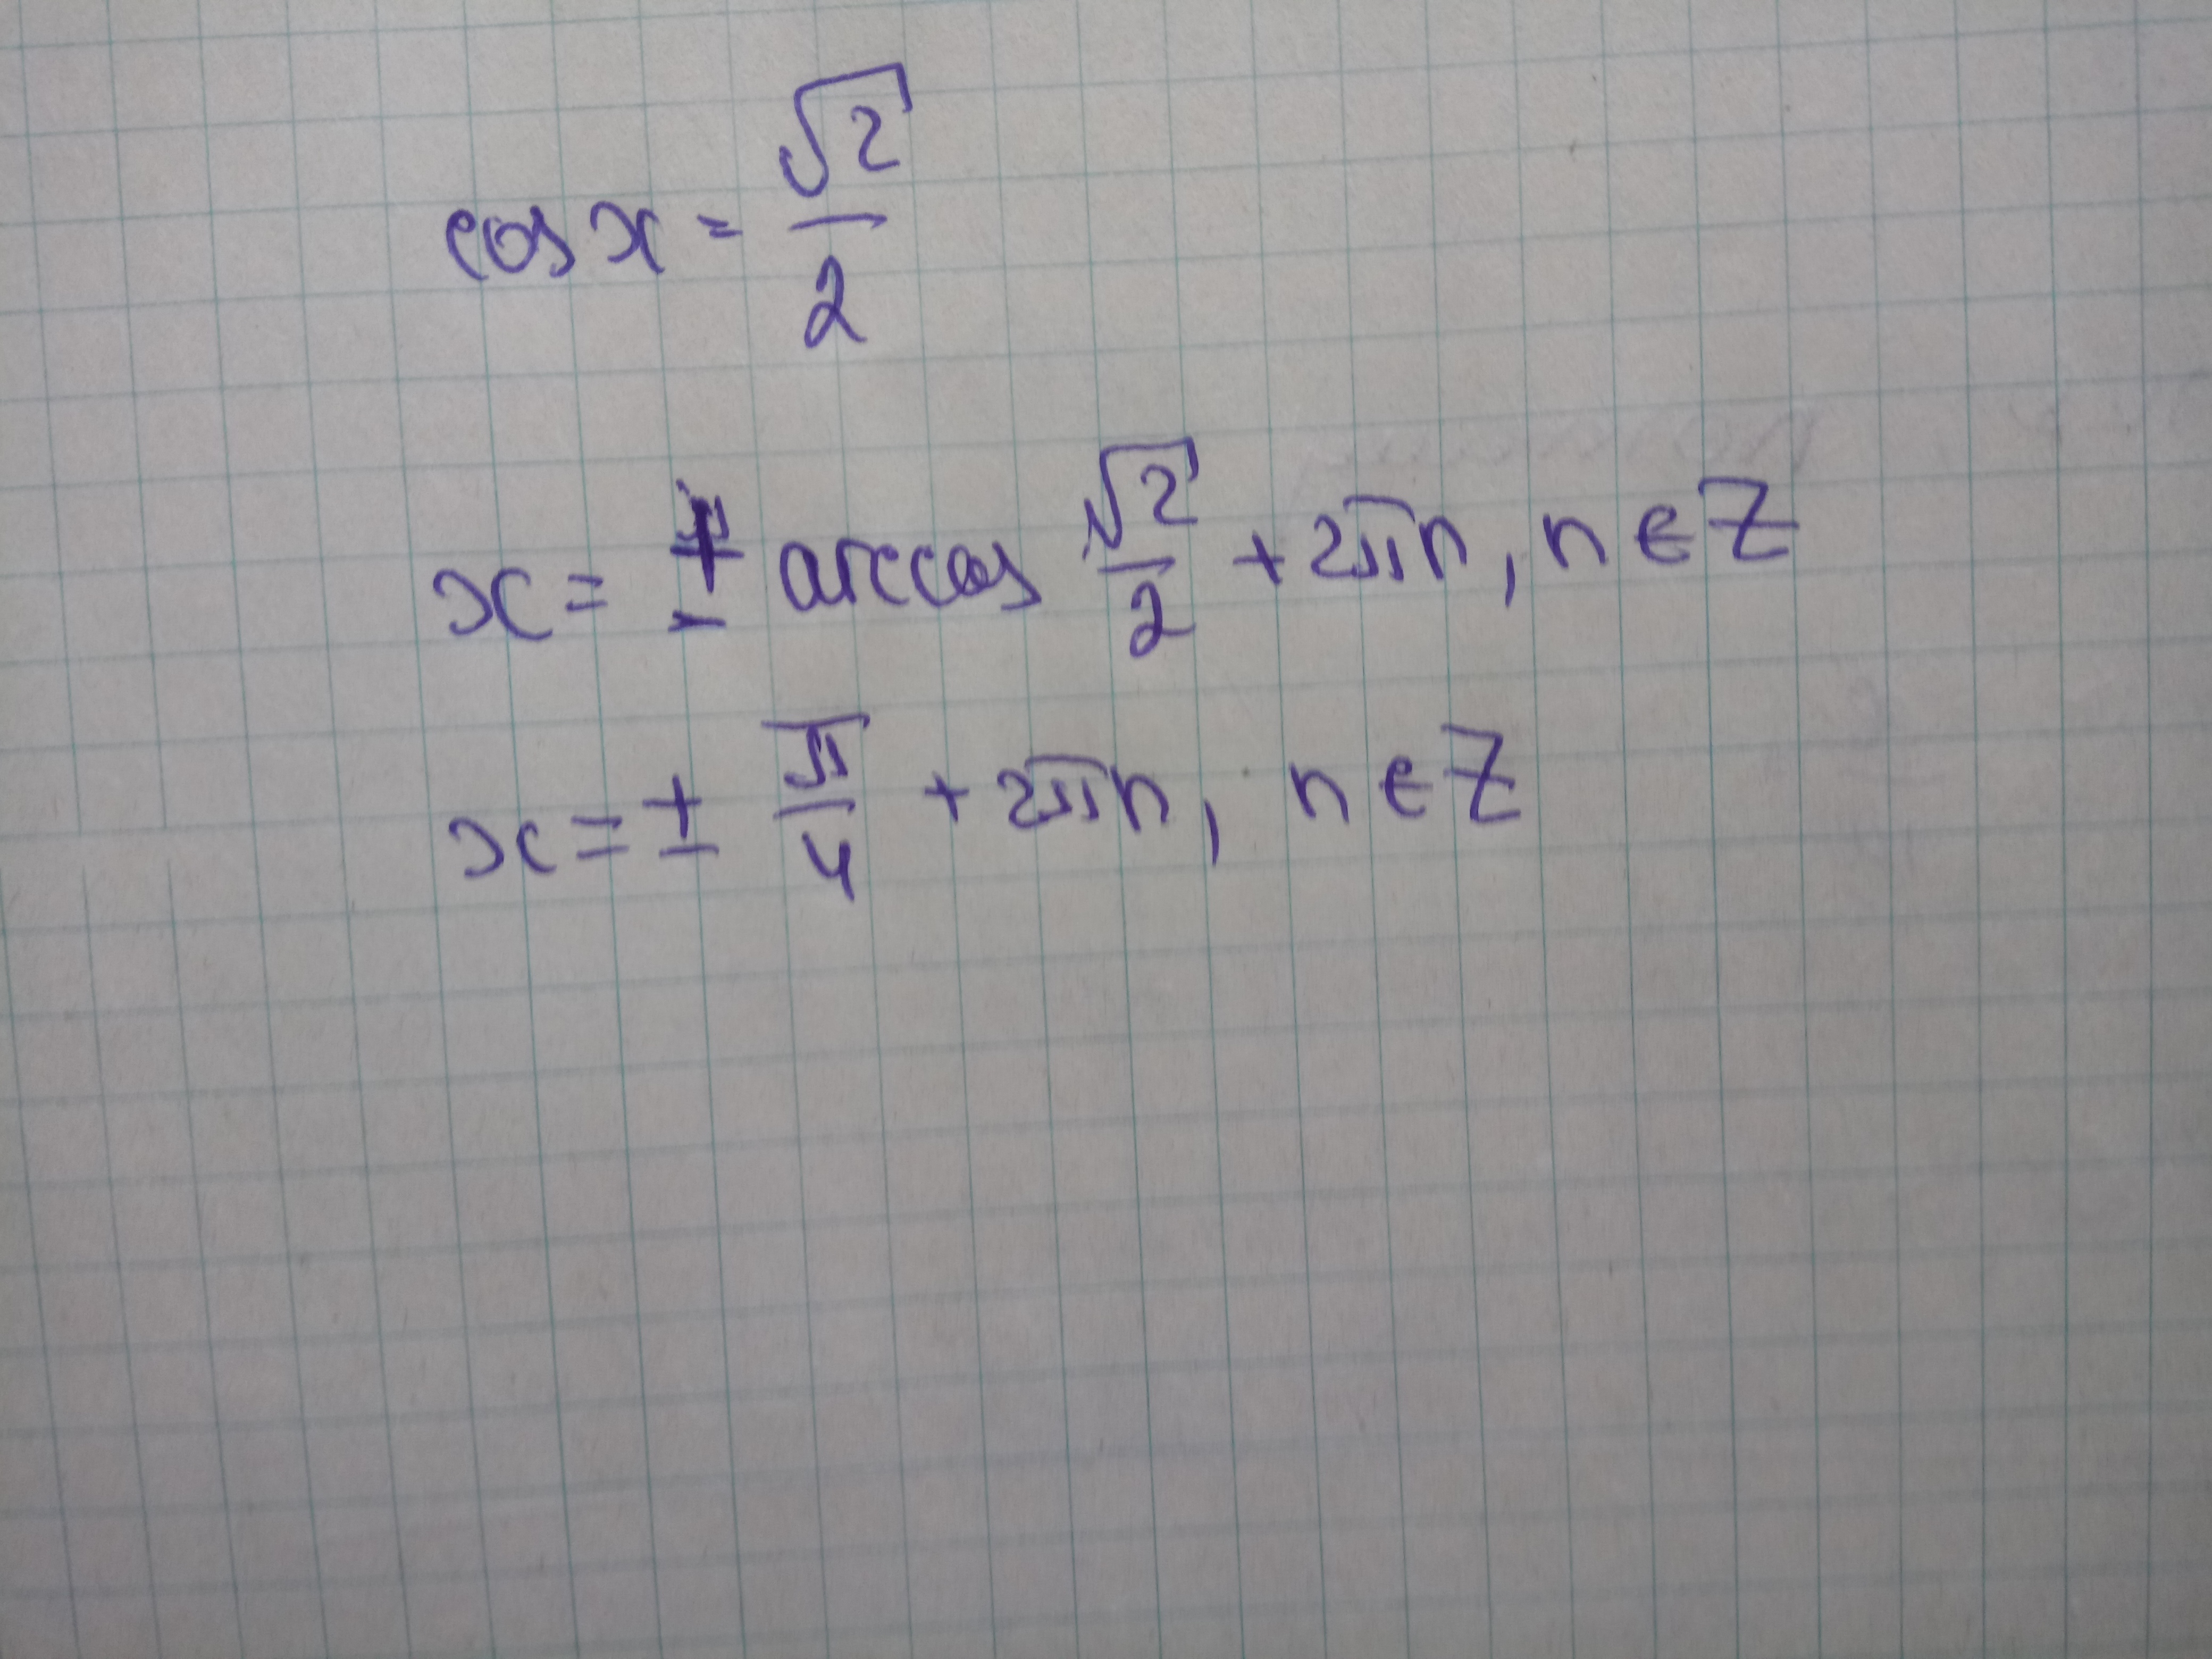 cos x = √2/2
x = ± arccos √2/2 + 2πn, n ∈ Z
x = ± π/4 + 2πn, n ∈ Z